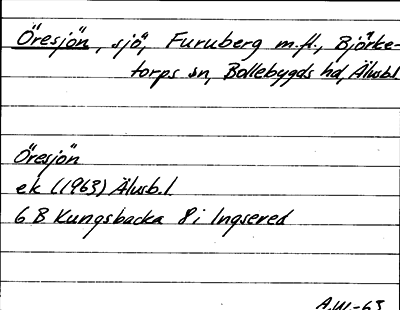 Öresjön, sjö, Furuberg m.fl., Björke-
torps sn, Bollebygds hd, Älvsb.l.
Öresjön
ek (1963) Älvsb.l.
6 B Kungsbacka 8 i Ingsered
A.W.-63